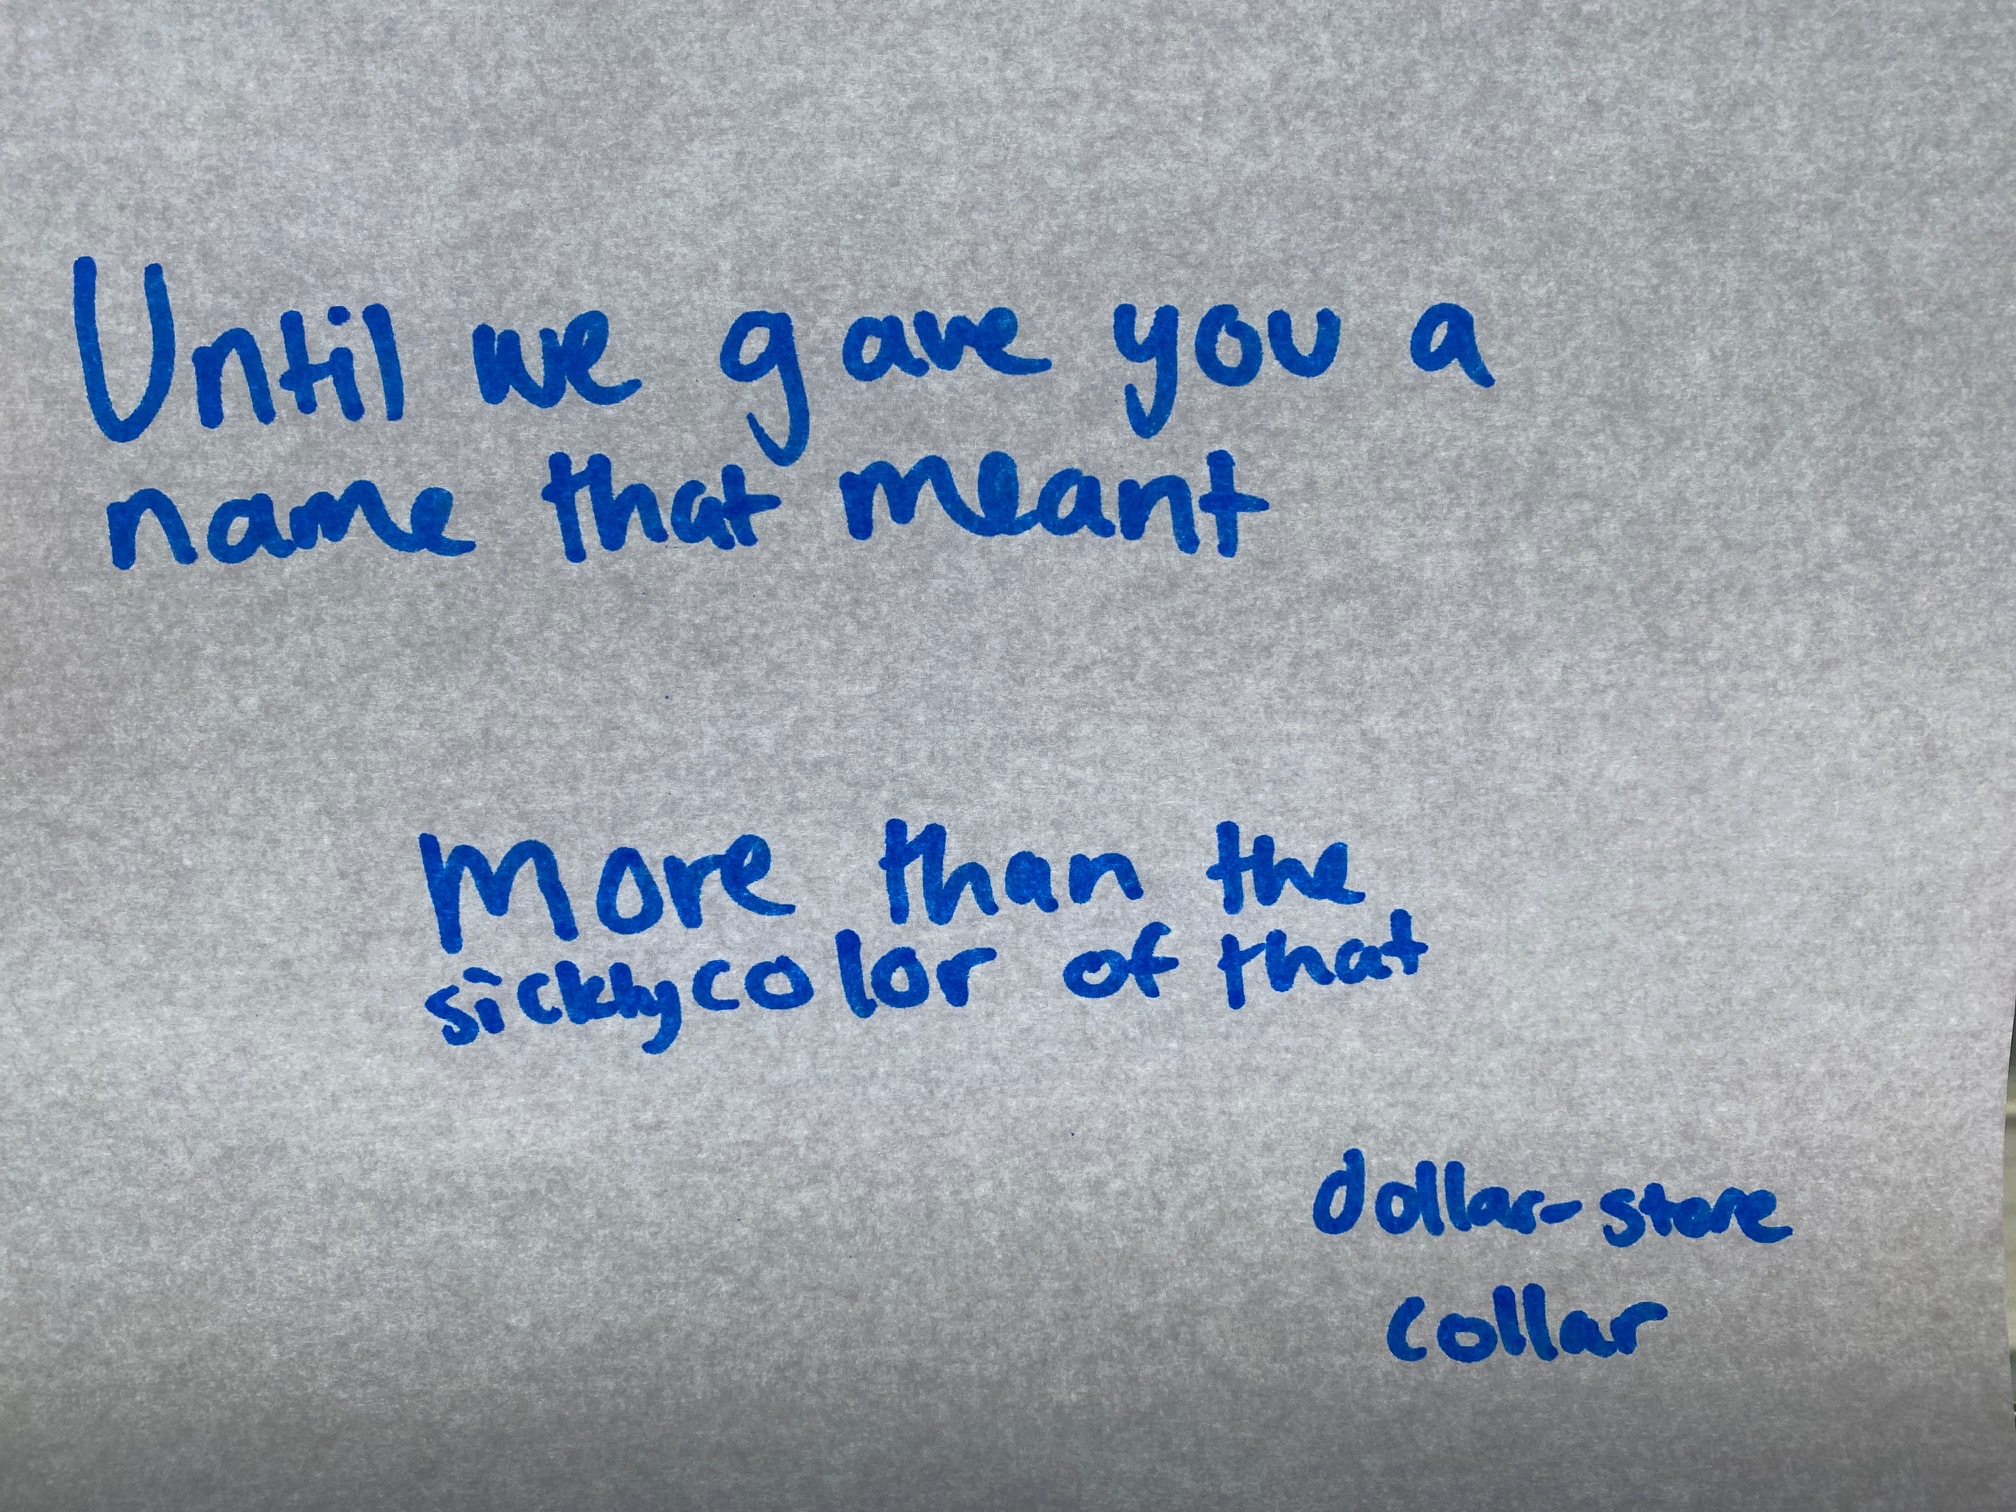 Until we gave you a
name that meant
More than the
sickly color of that
dollar-store
collar